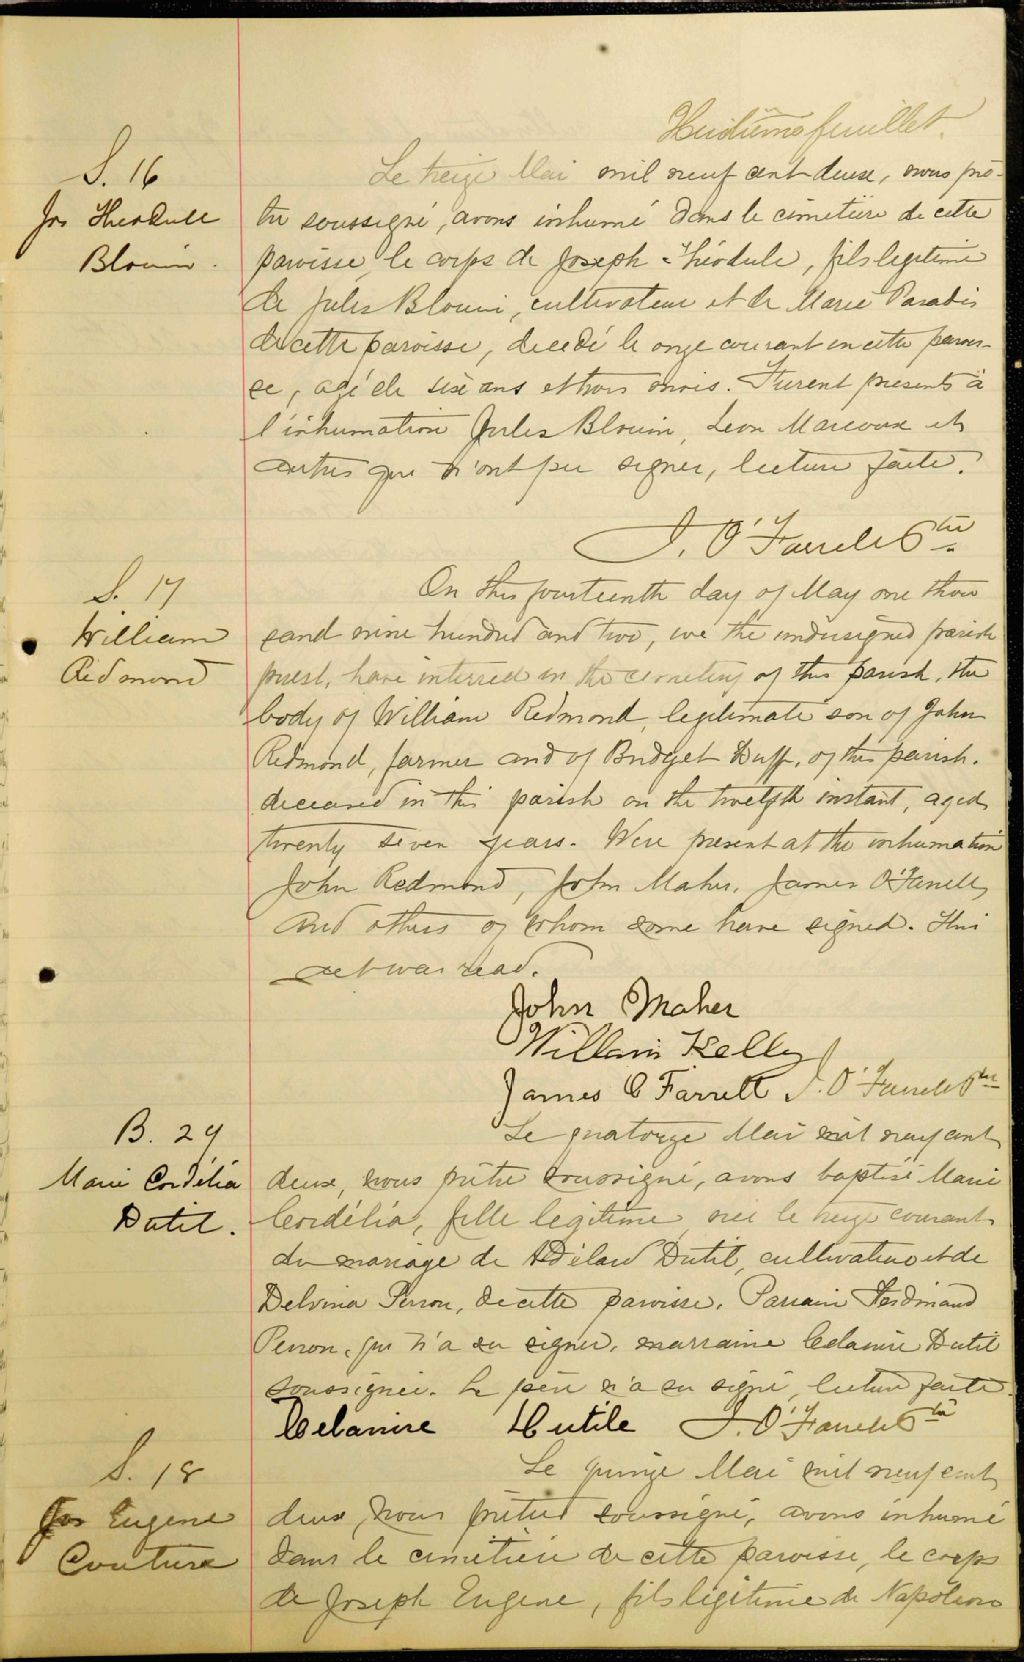 Huitième feuillet.
S. 16
Jos Théodule
Blouin.
Le treize Mai mil neuf cent deux, nous prê-
tre soussigné, avons inhumé dans le cimetière de cette
paroisse le corps de Joseph-Théodule, fils legitime
de Jules Blouin, cultivateur et de Marie Paradis
de cette paroisse, decedé le onze courant en cette parois-
se, agé de six ans et trois mois. Furent presents à
l'inhumation Jules Blouin, Leon Marcoux et
autres qui n'ont pu signer, lecture faite.
J. O'Farrell Ptre
S. 17
William
Redmond
On this fourteenth day of May one thou
sand nine hundred and two, we the undersigned parish
priest, have interred in the cemetery of this parish, the
body of William Redmond, legitimate son of John
Redmond, farmer and of Bridget Duff, of this parish.
deceased in this parish on the twelfth instant, aged
twenty seven years. Were present at the inhumation
John Redmond, John Maher, James O'Farrell,
and others of whom some have signed. This
act was read.
John Maher
William Kelly
James O Farrell J. O'Farrell Ptre
B. 29
Marie Cordélia
Dutil.
Le quatorze Mai mil neuf cent
deux, nous prêtre soussigné, avons baptisé Marie
Cordélia, fille legitime née le treize courant
du mariage de Adélard Dutil, cultivateur et de
Delvina Perron, de cette paroisse. Parrain Ferdinand
Perron, qui n'a su signer, marraine Celanire Dutil
soussignée. Le père n'a su signé, lecture faite.
Celanire Dutile J. O'Farrell Ptre
S. 18
Jos Eugene
Couture
Le quinze Mai mil neuf cent
deux, nous prêtre soussigné, avons inhumé
dans le cimetière de cette paroisse, le corps
de Joseph Eugene, fils légitime de Napoléon